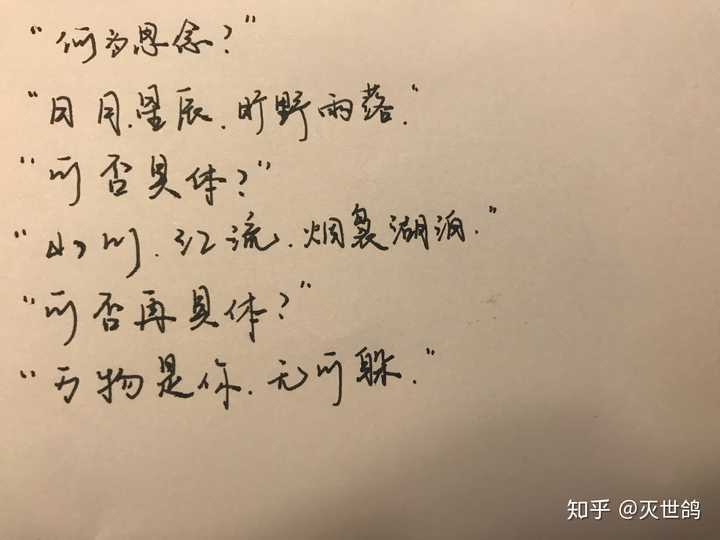 “何为思念？”
“日月.星辰.旷野雨落.”
“可否具体？”
“山川.江流.烟袅湖泊.”
“可否再具体？”
“万物是你.无可躲.”
知乎 @灭世鸽